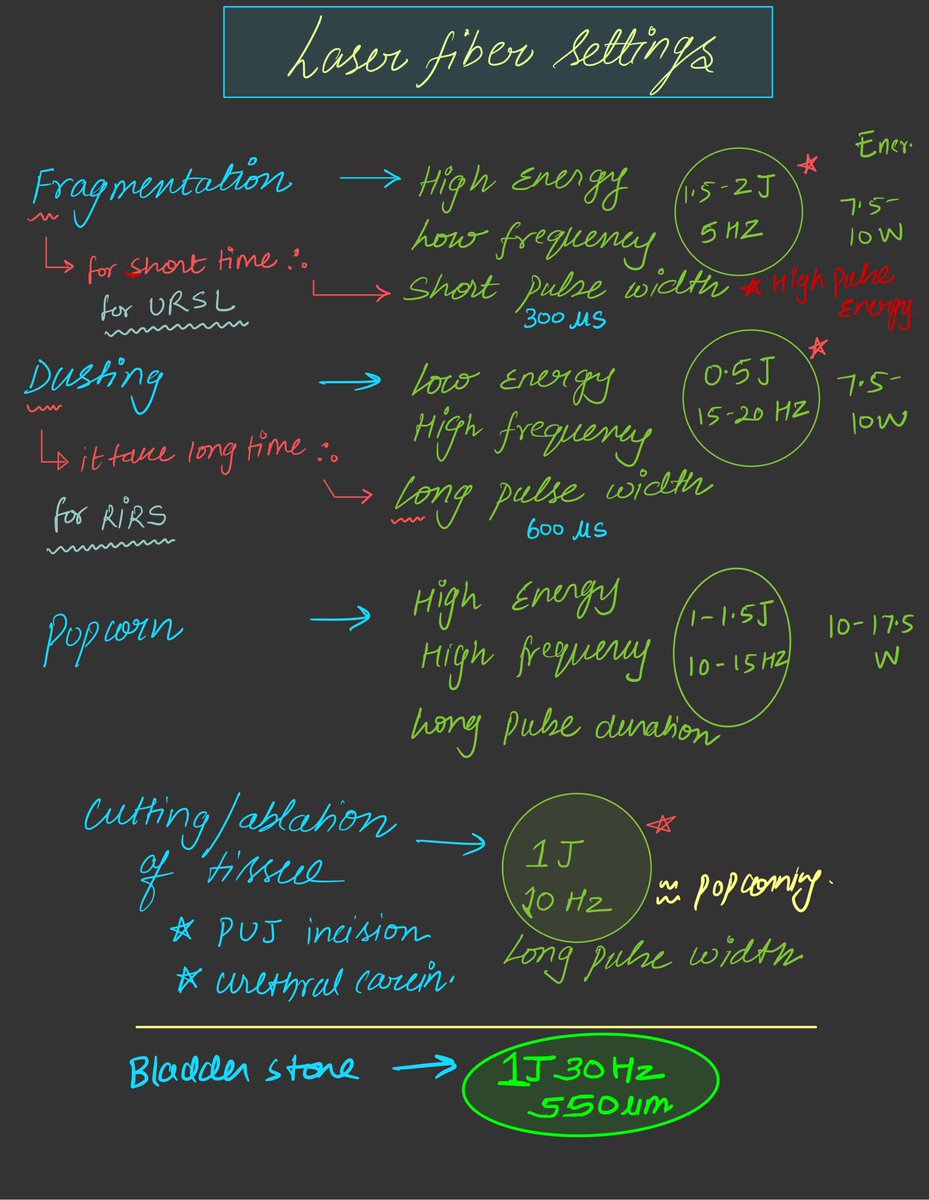 Laser fiber settings
Ener.
Fragmentation → High Energy 1.5-2J
Low frequency 5 HZ
7.5-
10W
for short time ∴ → Short pulse width ★ High pulse
Energy.
for URSL
300 μs
Dusting → Low Energy 0.5J
High frequency 15-20 HZ
7.5-
10W
it take long time ∴ → Long pulse width
for RIRS
600 μs
Popcorn → High Energy 1-1.5J
High frequency 10-15HZ
10-17.5
W
Long pulse duration
Cutting/ablation → 1J
of tissue
10 Hz ≈ popcorning.
☆ PUJ incision
Long pulse width
☆ urethral carcin.
Bladder stone → 1J 30Hz
550 μm